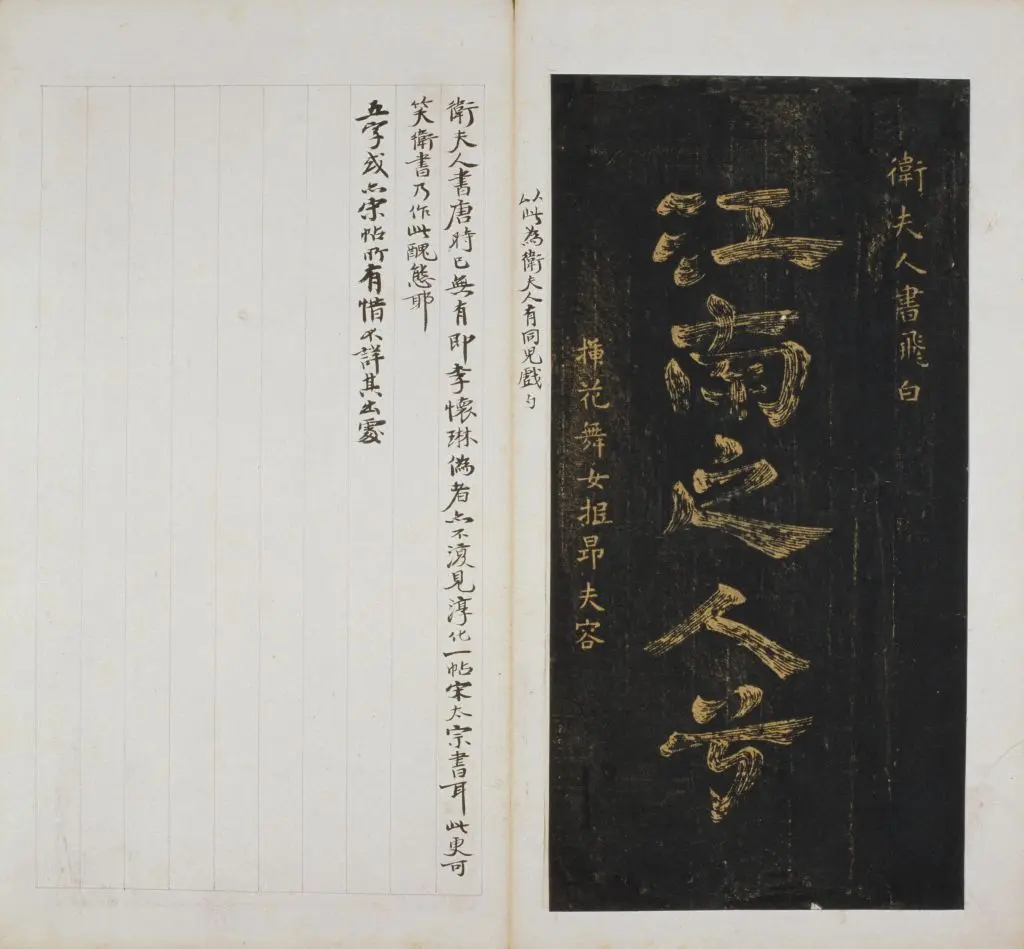 衛夫人書飛白
江南之人兮
插花舞女抵昂夫容
以此為衛夫人有同兒戲
衛夫人書唐時已無有即李懷琳偽者亦不復見淳化一帖宋太宗書耳此更可
笑衛書乃作此醜態耶
五字或亦宋帖所有惜不詳其出處